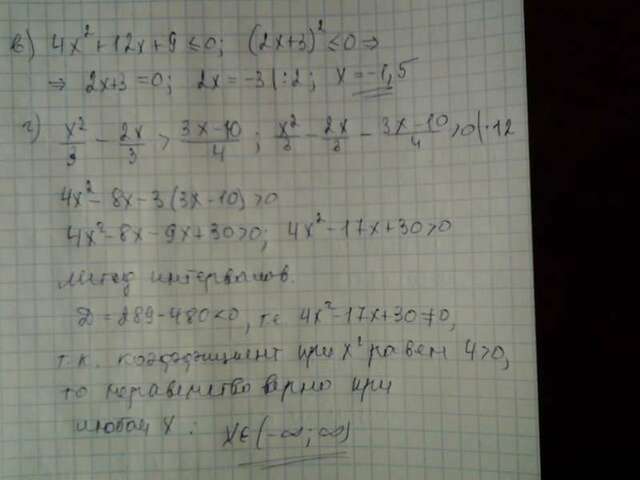 в) 4x²+12x+9≤0; (2x+3)²≤0 ⇒
⇒ 2x+3=0; 2x=-3|:2; x=-1,5
г) x²/3 - 2x/3 > 3x-10/4; x²/3 - 2x/3 - 3x-10/4 >0|·12
4x²-8x-3(3x-10)>0
4x²-8x-9x+30>0; 4x²-17x+30>0
Метод интервалов.
D=289-480<0, т.е. 4x²-17x+30≠0,
т.к. коэффициент при x² равен 4>0,
то неравенство верно при
любом x: x∈(-∞;∞)